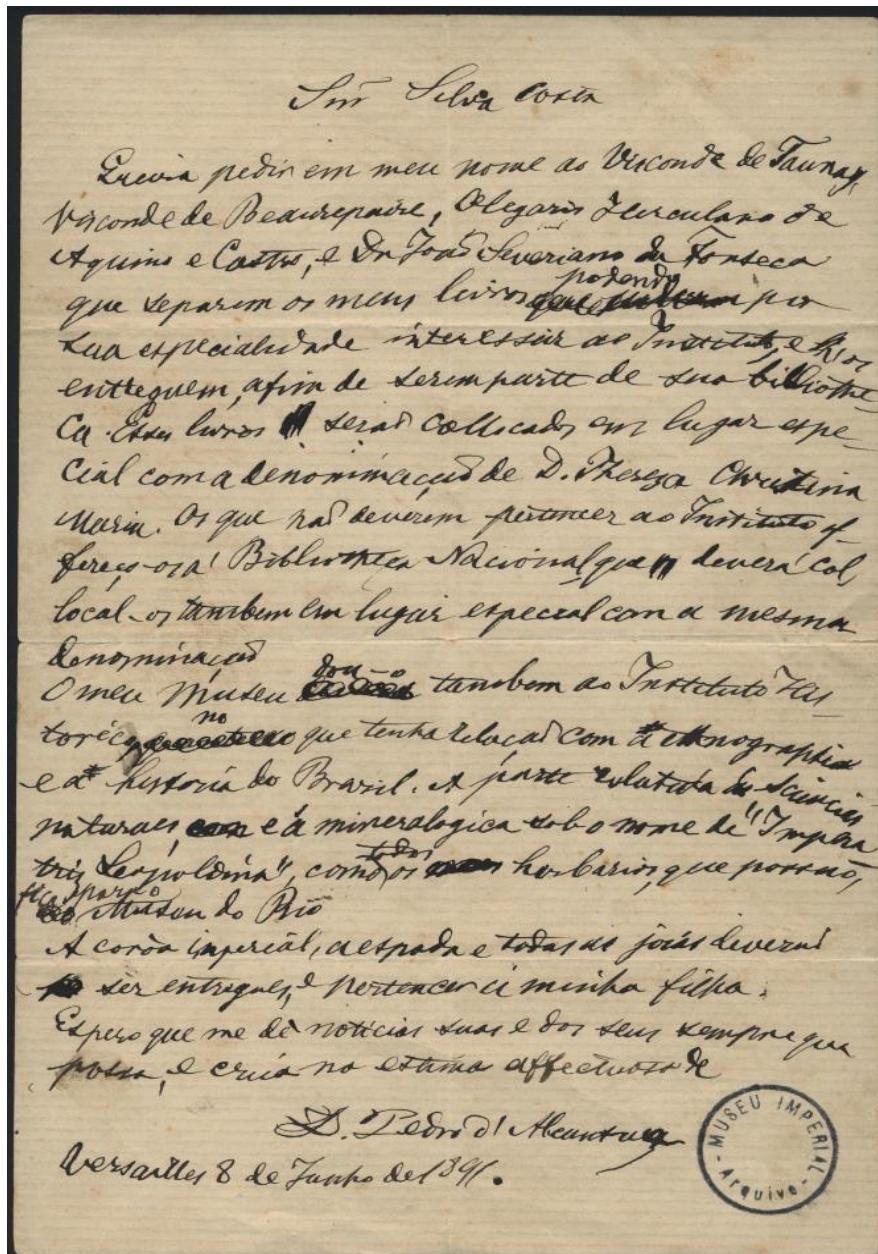 Snr Silva Costa
Queira pedir em meu nome ao Visconde de Taunay,
Visconde de Beaurepaire, Olegario Herculano de
Aquino e Castro, e Dr João Severiano da Fonseca
que separem os meus livros podendo por
sua especialidade interessar ao Instituto, e lh'os
entreguem, afim de serem parte de sua bibliothe-
ca. Esses livros serão collocados em lugar espe-
cial com a denominação de D. Thereza Christina
Maria. Os que não deverem pertencer ao Instituto of-
fereço-os á Bibliotheca Nacional, que deverá col-
local-os tambem em lugar especial com a mesma
denominação
O meu Museu dou-o tambem ao Instituto His-
torico no que tenha relação com a ethnographia
e a historia do Brazil. A parte relativa ás sciencias
naturaes, e á mineralogica sob o nome de "Impera-
triz Leopoldina", como todos os herbarios, que possuo,
ficarão ao Museu do Rio
A corôa imperial, a espada e todas as joias deverão
ser entregues, e pertencer á minha filha.
Espero que me dê noticias suas e dos seus sempre que
possa, e creia na estima affectuosa de
D. Pedro d'Alcantara
Versailles 8 de Junho de 1891.
MUSEU IMPERIAL
- Arquivo -